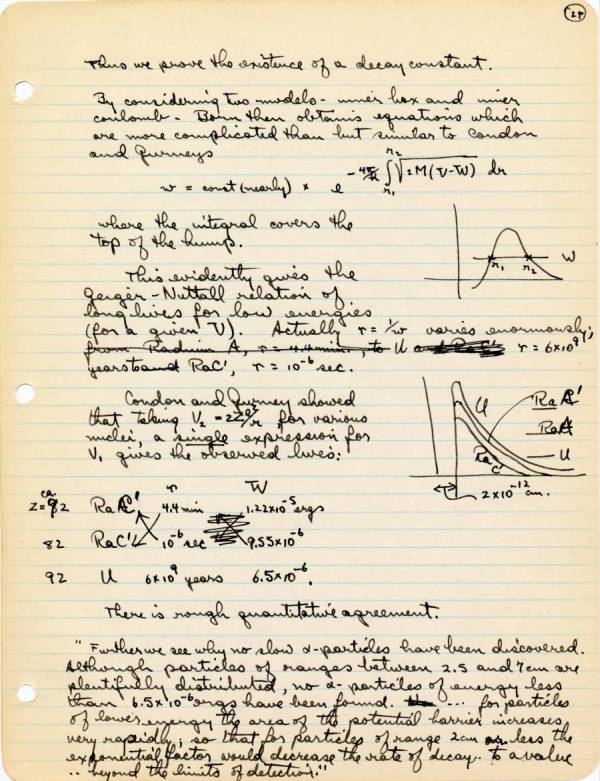 24
Thus we prove the existence of a decay constant.
By considering two models - inner box and inner
coulomb - Born then obtains equations which
are more complicated than but similar to Condon
and Gurneys
w = const (nearly) × e^{-4π/h ∫_{r₁}^{r₂} √2M(V-W) dr}
where the integral covers the
top of the hump.
W
r₁ r₂
This evidently gives the
Geiger-Nuttall relation of
long lives for low energies
(for a given V). Actually τ = 1/w varies enormously;
from Radium A, τ = 4.4 min., to U and RaC' τ = 6×10⁹
years to RaC', τ = 10⁻⁶ sec.
Condon and Gurney showed
that taking V₂ = 2Ze²/r for various
nuclei, a single expression for
V₁ gives the observed lives:
U
RaC'
RaA
U
RaC'
2×10⁻¹² cm.
τ W
ca
Z=92 RaC' 4.4 min 1.22×10⁻⁵ ergs
82 RaC' 10⁻⁶ sec 9.55×10⁻⁶
92 U 6×10⁹ years 6.5×10⁻⁶.
There is rough quantitative agreement.
"Further we see why no slow α-particles have been discovered.
Although particles of ranges between 2.5 and 7cm are
plentifully distributed, no α-particles of energy less
than 6.5×10⁻⁶ ergs have been found. ... for particles
of lower energy the area of the potential barrier increases
very rapidly, so that for particles of range 2cm or less the
exponential factor would decrease the rate of decay .. to a value
.. beyond the limits of detection."